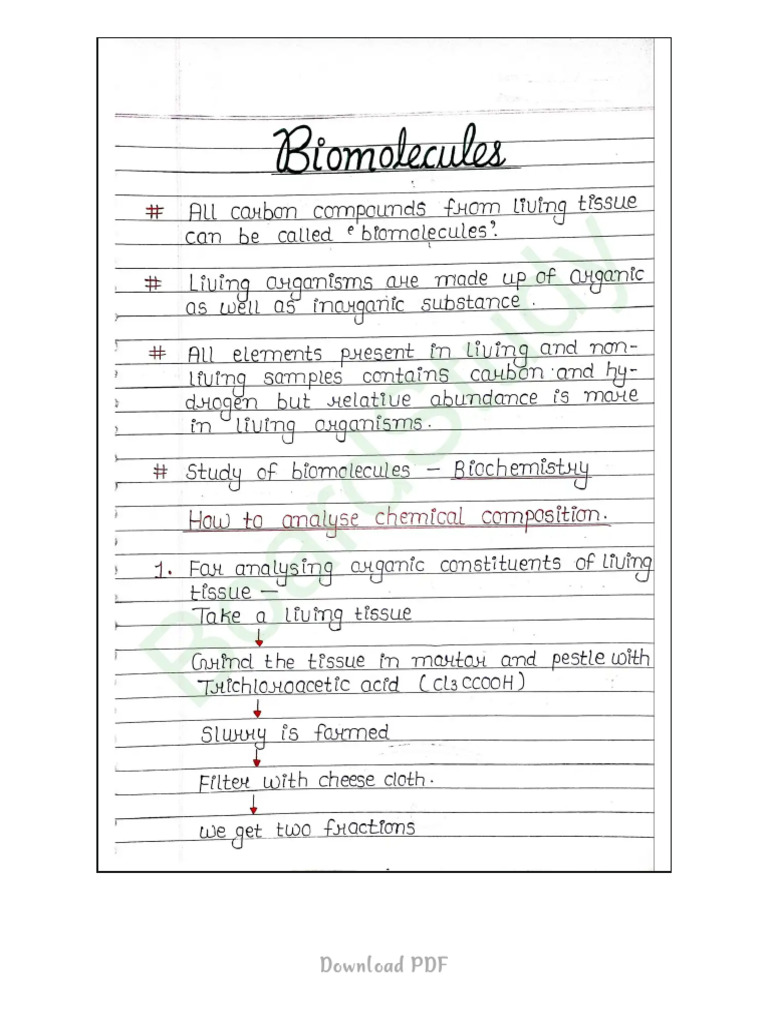 Biomolecules
# All carbon compounds from living tissue
can be called ‘biomolecules’.
# Living organisms are made up of organic
as well as inorganic substance.
# All elements present in living and non-
living samples contains carbon and hy-
drogen but relative abundance is more
in living organisms.
# Study of biomolecules – Biochemistry
How to analyse chemical composition.
1. For analysing organic constituents of living
tissue –
Take a living tissue
↓
Grind the tissue in mortar and pestle with
Trichloroacetic acid (Cl3CCOOH)
↓
Slurry is formed
↓
Filter with cheese cloth.
↓
we get two fractions
BoardStudy
Download PDF